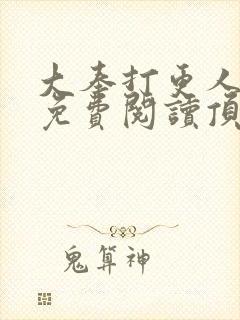 大奉打更人
免費閱讀頂
鬼算神